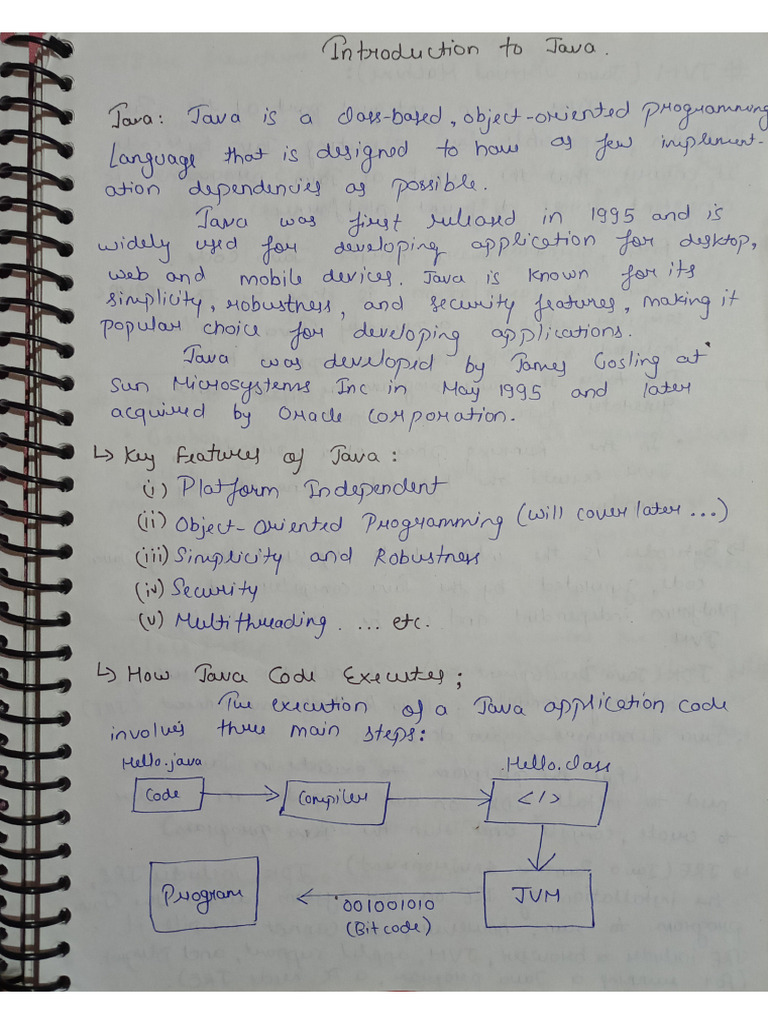 Introduction to Java.
Java: Java is a class-based, object-oriented programming
Language that is designed to have as few implement-
ation dependencies as possible.
Java was first released in 1995 and is
widely used for developing application for desktop,
web and mobile devices. Java is known for its
simplicity, robustness, and security features, making it
popular choice for developing applications.
Java was developed by James Gosling at
Sun Microsystems Inc in May 1995 and later
acquired by Oracle Corporation.
↳ Key features of Java:
(i) Platform Independent
(ii) Object-Oriented Programming (will cover later ...)
(iii) Simplicity and Robustness
(iv) Security
(v) Multithreading .... etc.
↳ How Java Code Executes;
The execution of a Java application code
involves three main steps:
Hello.java
.Hello.class
Code
Compiler
</>
Program
001001010
(Bitcode)
JVM